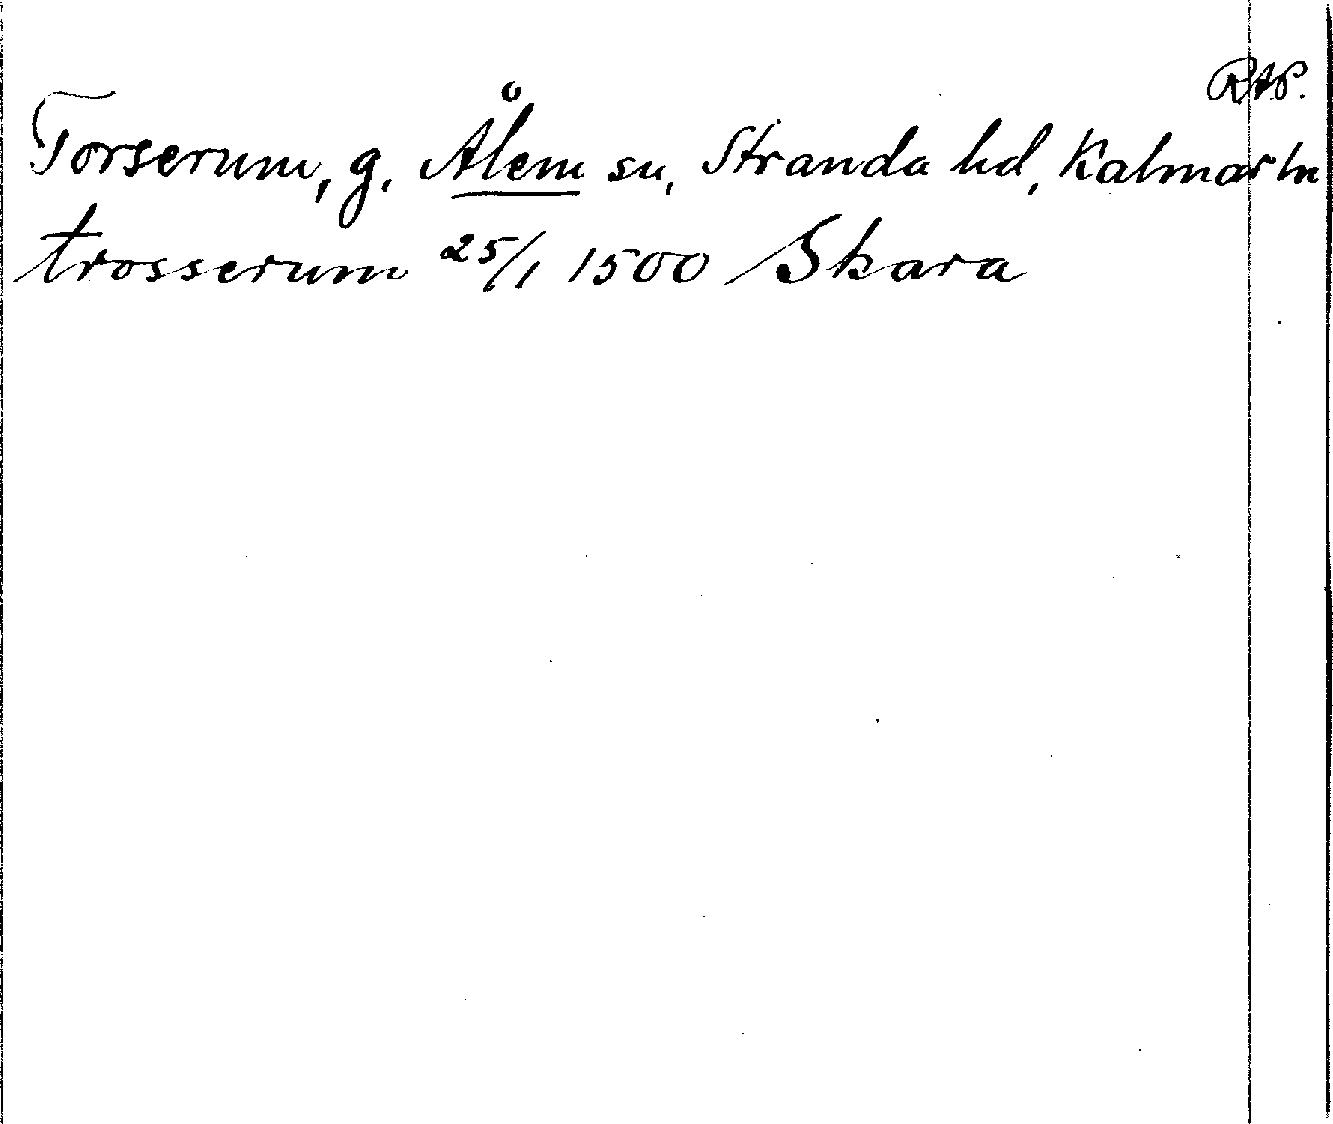 RAP.
Torserum, g. Ålem sn, Stranda hd, Kalmar ln
trosserum 25/1 1500 Skara